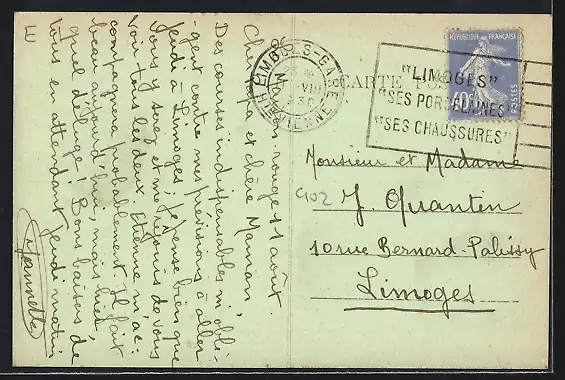 Maison-rouge 11 août.
Cher papa et chère Maman,
Des courses indispensables m'obli-
gent contre mes prévisions à aller
jeudi à Limoges, je pense bien que
vous y serez et me réjouis de vous
voir tous les deux. Etienne m'ac-
compagnera probablement. Il fait
beau aujourd'hui, mais hier
quel déluge! Bons baisers de
vous en attendant jeudi matin
Jeannette
E
LIMOGES-GARE
VIII
30
HTE VIENNE
CARTE POS
"LIMOGES"
"SES PORCELAINES"
"SES CHAUSSURES"
REPUBLIQUE FRANÇAISE
40c
POSTES
Monsieur et Madame
J. Quantin
10 rue Bernard-Palissy
Limoges
C102